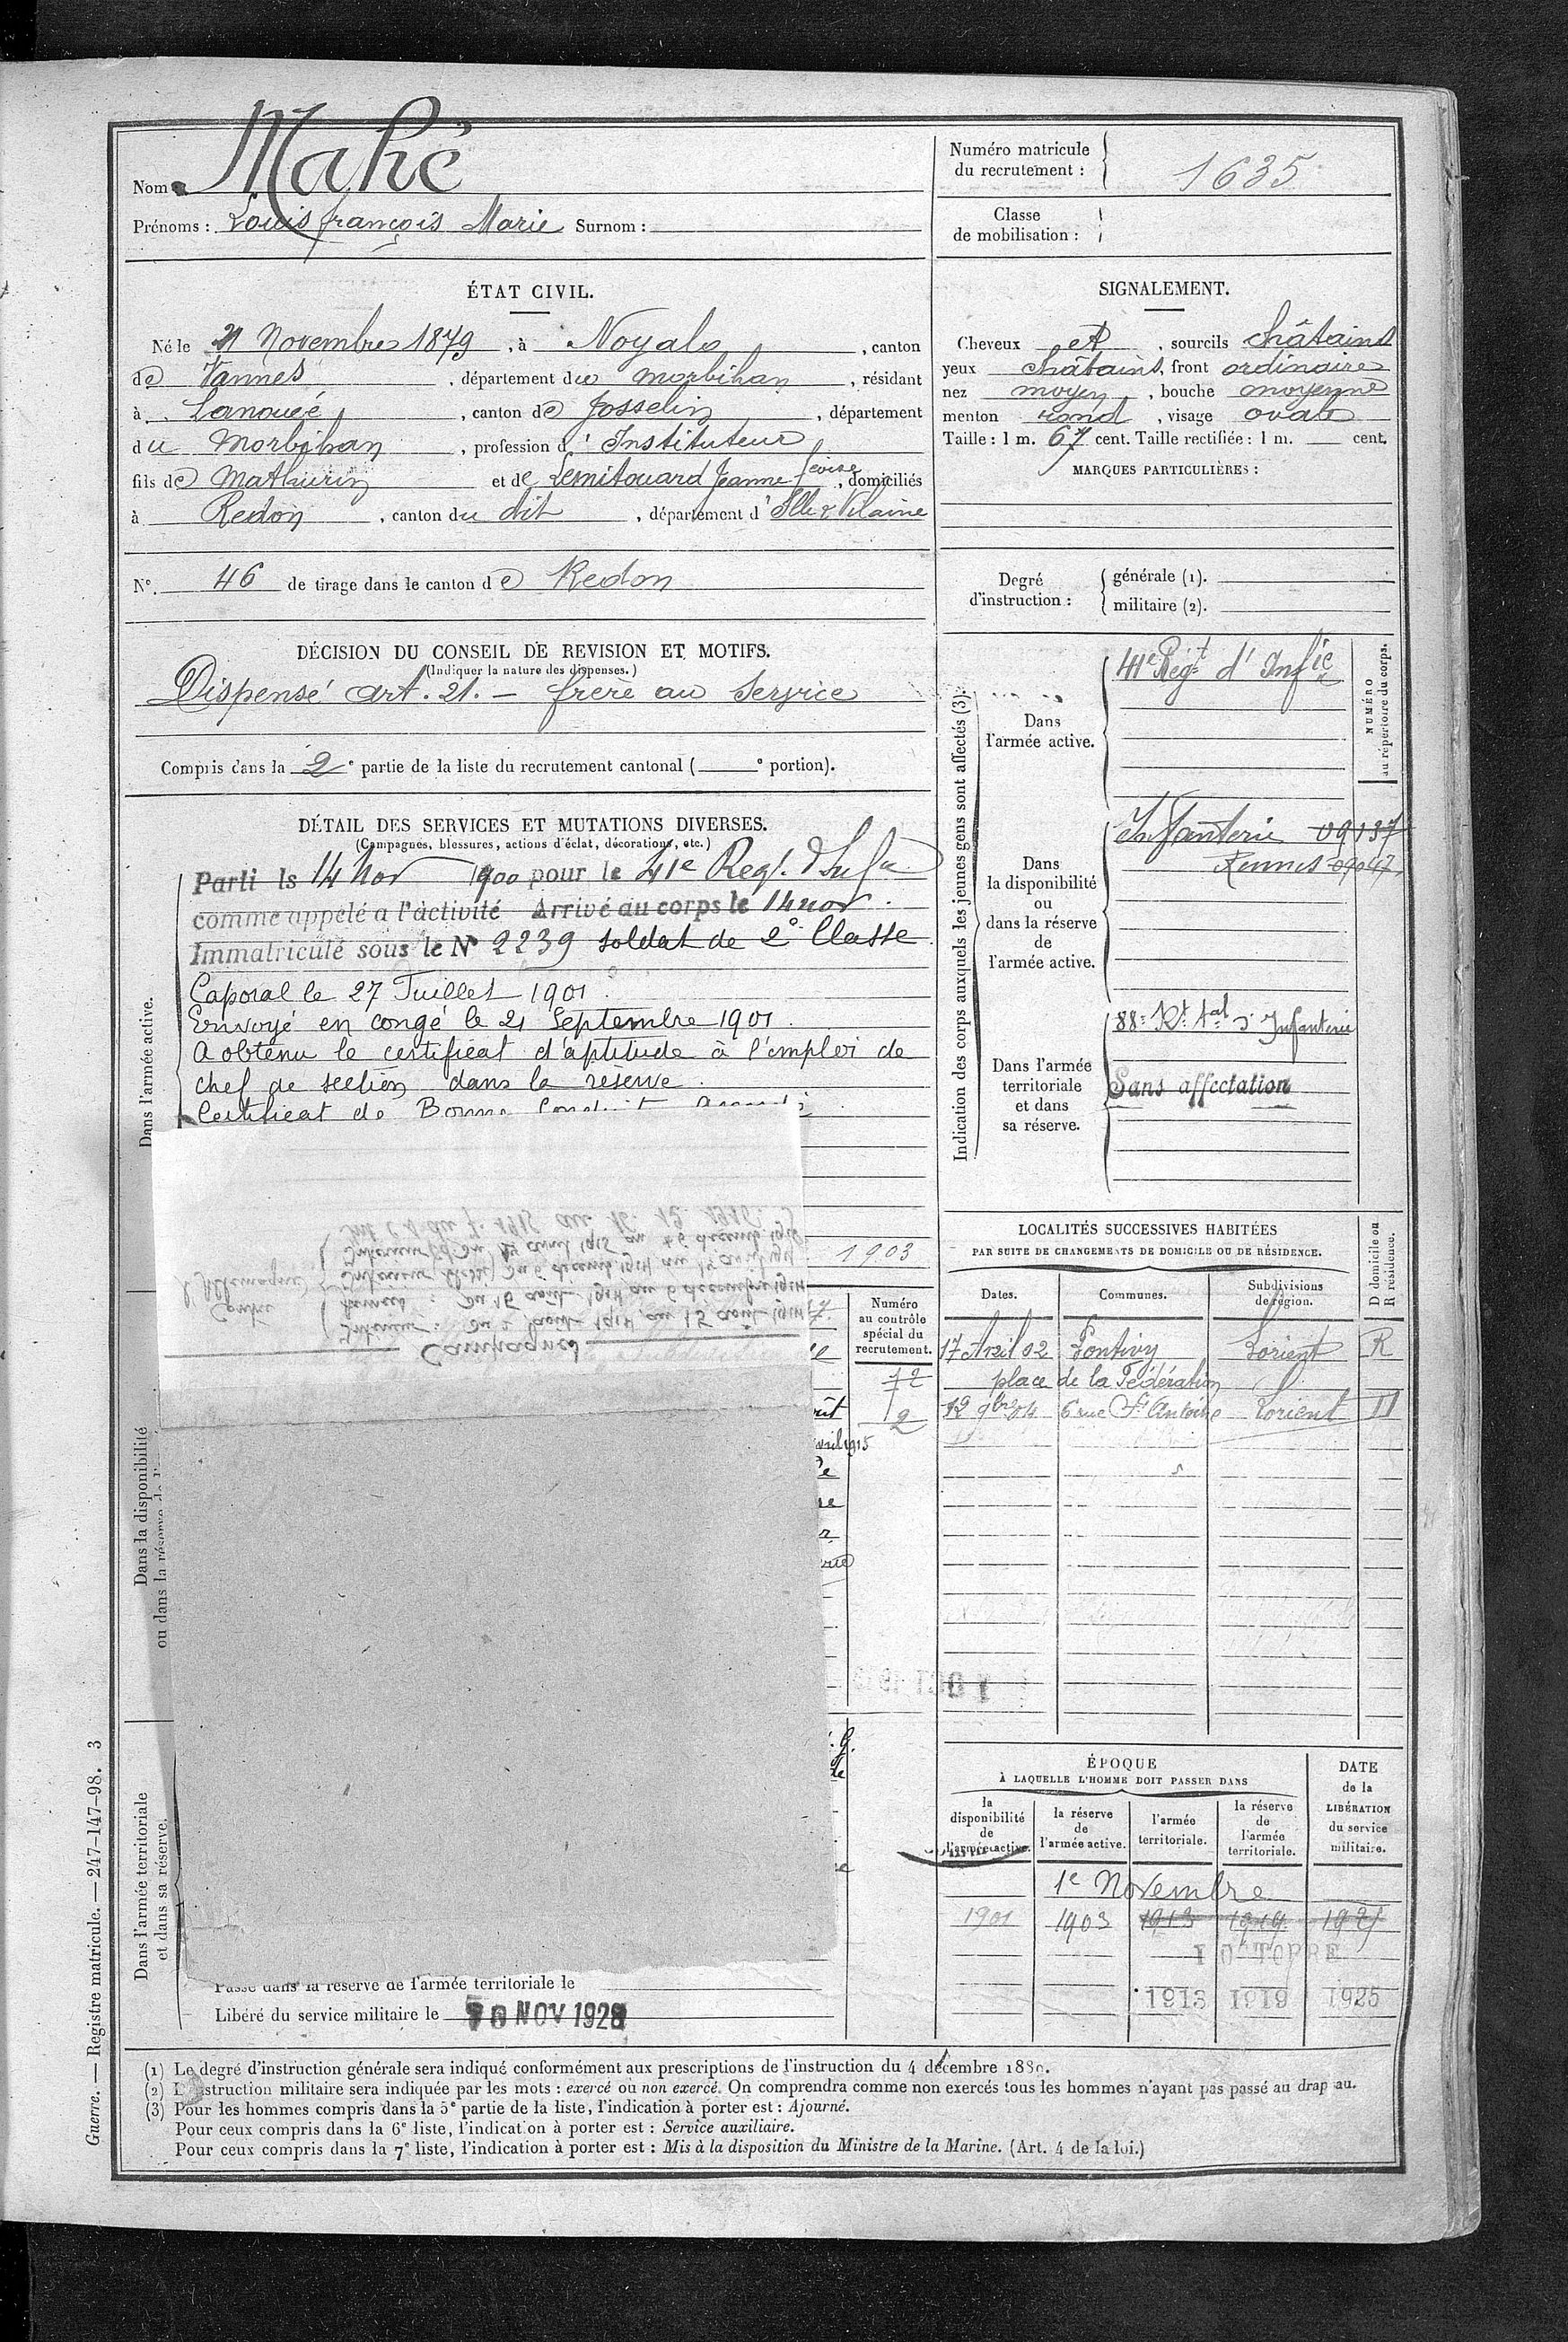 Nom Mahé
Prénoms : Louis françois Marie Surnom :
Numéro matricule
du recrutement : 1635
Classe
de mobilisation :
ÉTAT CIVIL.
Né le 21 Novembre 1879, à Noyalo, canton
de Vannes, département du Morbihan, résidant
à Lanouée, canton de Josselin, département
du Morbihan, profession d'Instituteur
fils de Mathurin et de Lemitouard Jeanne , domiciliés
à Redon, canton du dit, département d'Ille & Vilaine
N°. 46 de tirage dans le canton de Redon
SIGNALEMENT.
Cheveux et, sourcils châtains
yeux châtains, front ordinaire
nez moyen, bouche moyenne
menton rond, visage ovale
Taille : 1 m. 67 cent. Taille rectifiée : 1 m. cent.
MARQUES PARTICULIÈRES :
Degré
d'instruction :
générale (1).
militaire (2).
DÉCISION DU CONSEIL DE REVISION ET MOTIFS.
(Indiquer la nature des dispenses.)
Dispensé art. 21. — frère au Service
Compris dans la 2e partie de la liste du recrutement cantonal ( e portion).
DÉTAIL DES SERVICES ET MUTATIONS DIVERSES.
(Campagnes, blessures, actions d'éclat, décorations, etc.)
Dans l'armée active.
Parti le 14 Nov 1900 pour le 41e Regt. d'Infie
comme appelé a l'activité Arrivé au corps le 14 nov.
Immatriculé sous le N° 2239 soldat de 2e Classe
Caporal le 27 Juillet 1901.
Envoyé en congé le 21 Septembre 1901.
A obtenu le certificat d'aptitude à l'emploi de
chef de section dans la réserve.
Certificat de Bonne Conduite Accordé
1903
Campagnes
Contre l'Allemagne
Intérieur : du 2 août 1914 au 15 août 1914
Armées : du 16 août 1914 au 5 décembre 1914
Dans la disponibilité
ou dans la réserve de l'
Numéro
au contrôle
spécial du
recrutement.
2
avril 1915
Dans l'armée territoriale
et dans sa réserve.
Passé dans la réserve de l'armée territoriale le
Libéré du service militaire le 10 NOV 1928
Indication des corps auxquels les jeunes gens sont affectés (3).
NUMÉRO
au répertoire du corps.
Dans
l'armée active.
41e Régt d'Infie
Dans
la disponibilité
ou
dans la réserve
de
l'armée active.
Infanterie 09137
Rennes 09047
Dans l'armée
territoriale
et dans
sa réserve.
88e Rt tal d'Infanterie
Sans affectation
LOCALITÉS SUCCESSIVES HABITÉES
PAR SUITE DE CHANGEMENTS DE DOMICILE OU DE RÉSIDENCE.
D domicile ou
R résidence.
Dates. Communes. Subdivisions
de région.
17 Avril 02 Pontivy Lorient R
place de la Fédération
12 9bre 04 6 rue St Antoine Lorient D
ÉPOQUE
À LAQUELLE L'HOMME DOIT PASSER DANS
la
disponibilité
de
l'armée active.
la réserve
de
l'armée active.
l'armée
territoriale.
la réserve
de
l'armée
territoriale.
DATE
de la
LIBÉRATION
du service
militaire.
1e Novembre
1901 1903 1913 1919
1 OCTOBRE
1913 1919 1925
(1) Le degré d'instruction générale sera indiqué conformément aux prescriptions de l'instruction du 4 décembre 1889.
(2) L'instruction militaire sera indiquée par les mots : exercé ou non exercé. On comprendra comme non exercés tous les hommes n'ayant pas passé au drapeau.
(3) Pour les hommes compris dans la 5e partie de la liste, l'indication à porter est : Ajourné.
Pour ceux compris dans la 6e liste, l'indication à porter est : Service auxiliaire.
Pour ceux compris dans la 7e liste, l'indication à porter est : Mis à la disposition du Ministre de la Marine. (Art. 4 de la loi.)
Guerre. — Registre matricule. — 247-147-98. 3